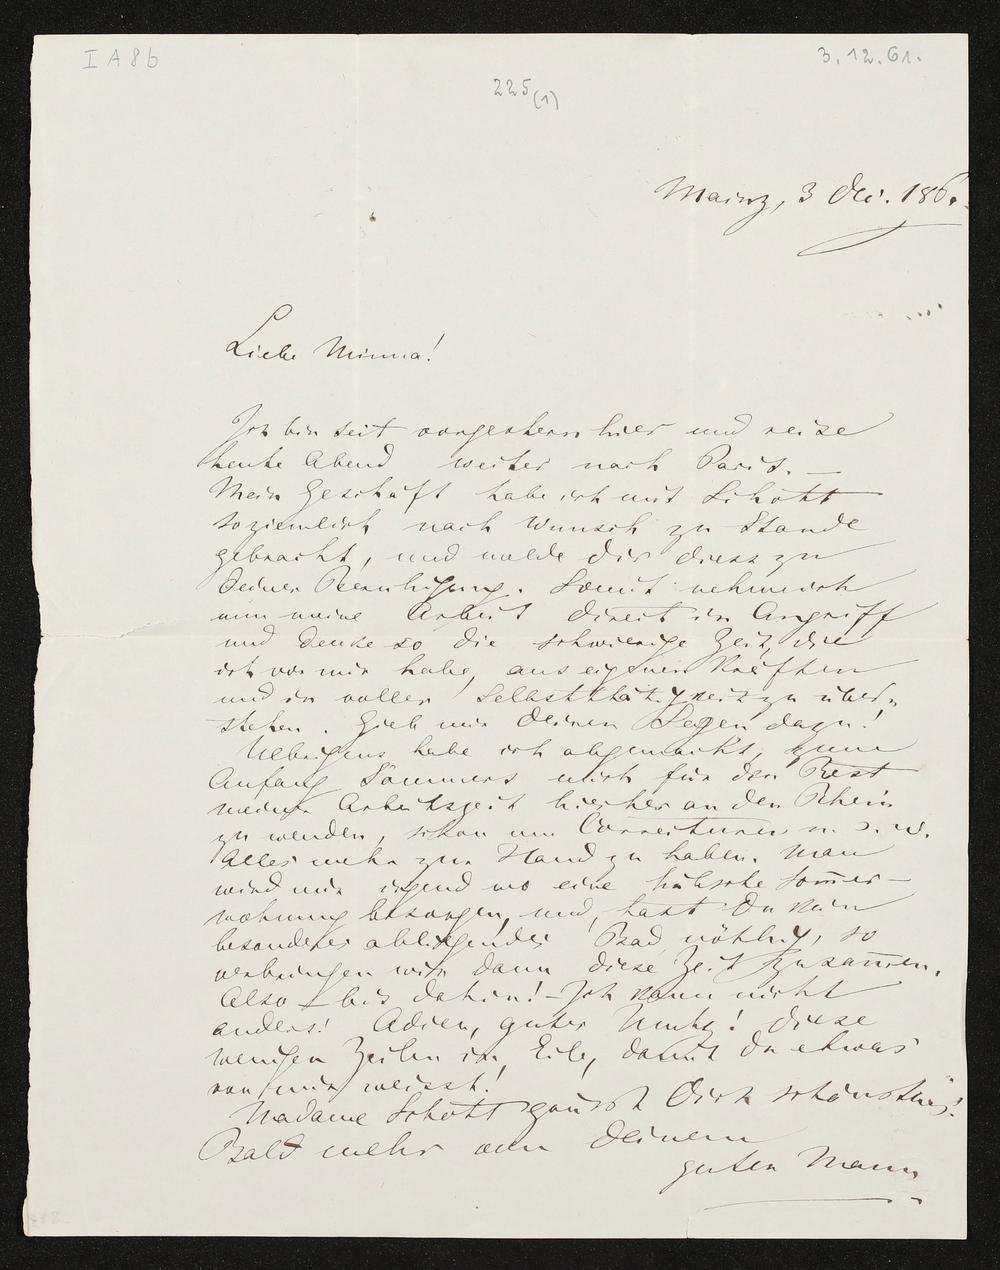 I A 8 b
3. 12. 61.
225(1)
Mainz, 3 Dec. 186
Liebe Minna!
Ich bin seit vorgestern hier und reise
heute Abend weiter nach Paris. —
Mein Geschäft habe ich mit Schott
so ziemlich nach Wunsch zu Stande
gebracht, und melde dir diess zu
Deiner Beruhigung. Somit nehme ich
nun meine Arbeit direct in Angriff
und denke so die schwierige Zeit, die
ich vor mir habe, aus eigenen Kräften
und in voller Selbstthätigkeit zu über-
stehen. Gieb mir Deinen Segen dazu!
Uebrigens habe ich abgemacht, zum
Anfang Sommers mich für den Rest
meiner Arbeitszeit hierher an den Rhein
zu wenden, schon um Correcturen u. s. w.
Alles mehr zur Hand zu haben. Man
wird mir irgend wo eine hübsche Som̄er-
wohnung besorgen, und, hast Du kein
besonderes abliegendes Bad nöthig, so
verbringen wir dann diese Zeit zusam̄en.
Also — bis dahin! — Ich kann nicht
anders! Adieu, gutes Mutz! Diese
wenigen Zeilen in Eile, damit du etwas
von mir weisst!
Madame Schott grüsst Dich schönstens!
Bald mehr von Deinem
guten Mann